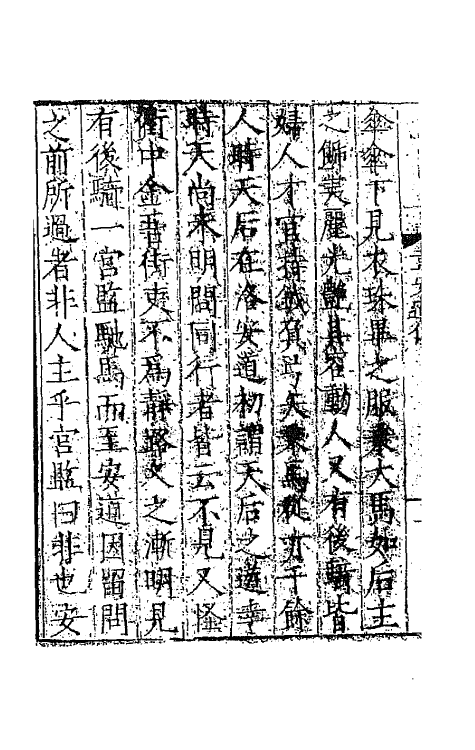 傘傘下見衣珠翠之服乗大馬如后主
之飾美麗光艷其容動人又有後騎皆
婦人才官持鉞負弓矢乗馬從亦千餘
人時天后在洛安道初謂天后之遊幸
時天尚未明問同行者皆云不見又怪
衢中金吾街吏不為靜路久之漸明見
有後騎一宮監馳馬而至安道因留問
之前所過者非人主乎宮監曰非也安